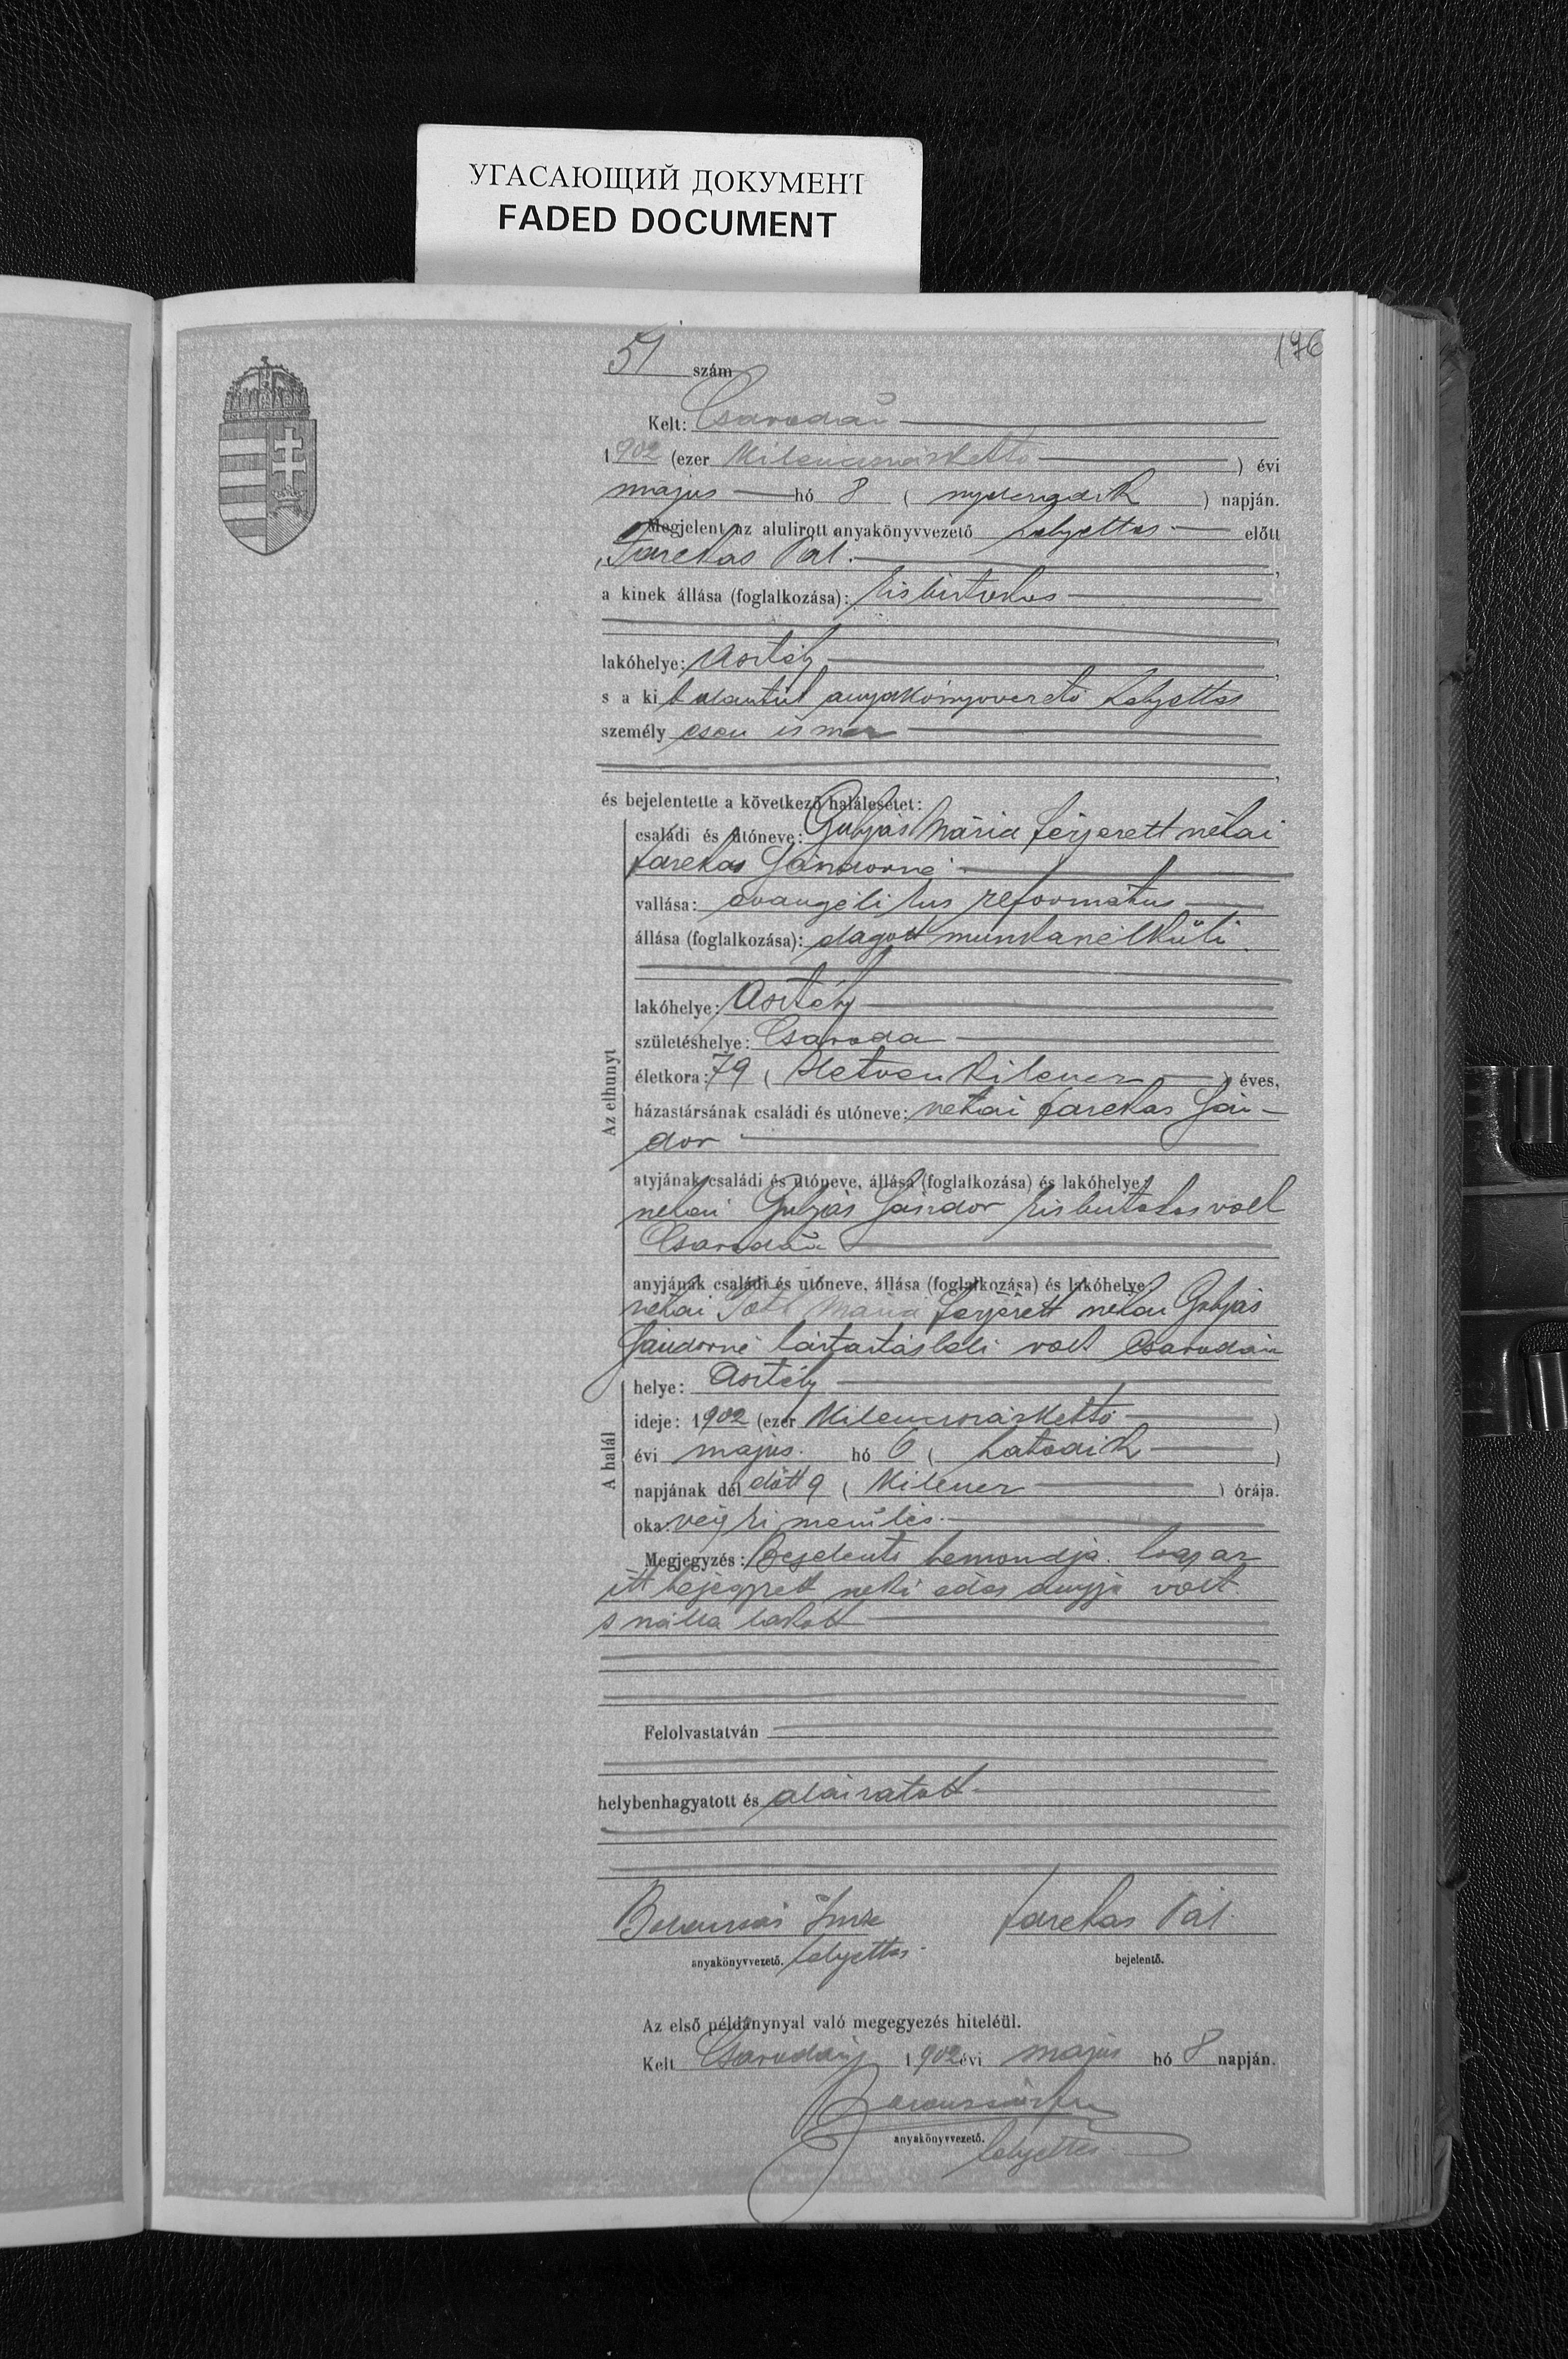 УГАСАЮЩИЙ ДОКУМЕНТ
FADED DOCUMENT
176
51 szám
Kelt: Csarodán
1902 (ezer kilenczszázkettő) évi
május hó 8 (nyolczadik) napján.
Megjelent az alulirott anyakönyvvezető helyettes előtt
Farekas Pál.
a kinek állása (foglalkozása): kisbirtokos
lakóhelye: Asztély
s a ki anyakönyvvezető helyettes
személyesen ismer
és bejelentette a következő halálesetet:
családi és utóneve: Gulyás Mária férjezett néhai
Farekas Sándorné
vallása: evangélikus református
állása (foglalkozása): munkanélküli
Az elhunyt
lakóhelye: Asztély
születéshelye: Csaroda
életkora: 79 (Hetvenkilencz) éves,
házastársának családi és utóneve: néhai Farekas Sán-
dor
atyjának családi és utóneve, állása (foglalkozása) és lakóhelye:
néhai Gulyás Sándor kisbirtokos volt
Csarodán
anyjának családi és utóneve, állása (foglalkozása) és lakóhelye:
néhai Mária férjezett néhai Gulyás
Sándorné háztartásbeli volt Csarodán
A halál
helye: Asztély
ideje: 1902 (ezer kilenczszázkettő)
évi május hó 6 (hatodik)
napjának dél előtt 9 (kilencz) órája.
oka: végkimerülés.
Megjegyzés: Bejelentő bemondja hogy az
itt bejegyzett neki édes anyja volt
s nálla lakott
Felolvastatván
helybenhagyatott és aláiratott
Imre Farekas Pál.
anyakönyvvezető. helyettes. bejelentő.
Az első példánynyal való megegyezés hiteléül.
Kelt Csarodán 1902 évi május hó 8 napján.
anyakönyvvezető.
helyettes